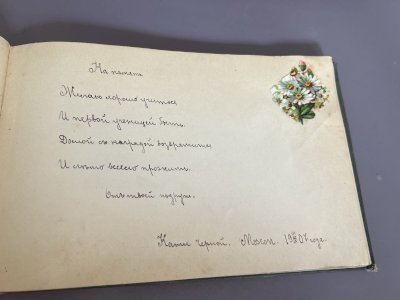 На память
Желаю хорошо учиться
И первой ученицей быть.
Домой съ наградой возвратиться
И лѣто весело прожить.
Отъ твоей подруги.
Кати Черной. 19 07 года.